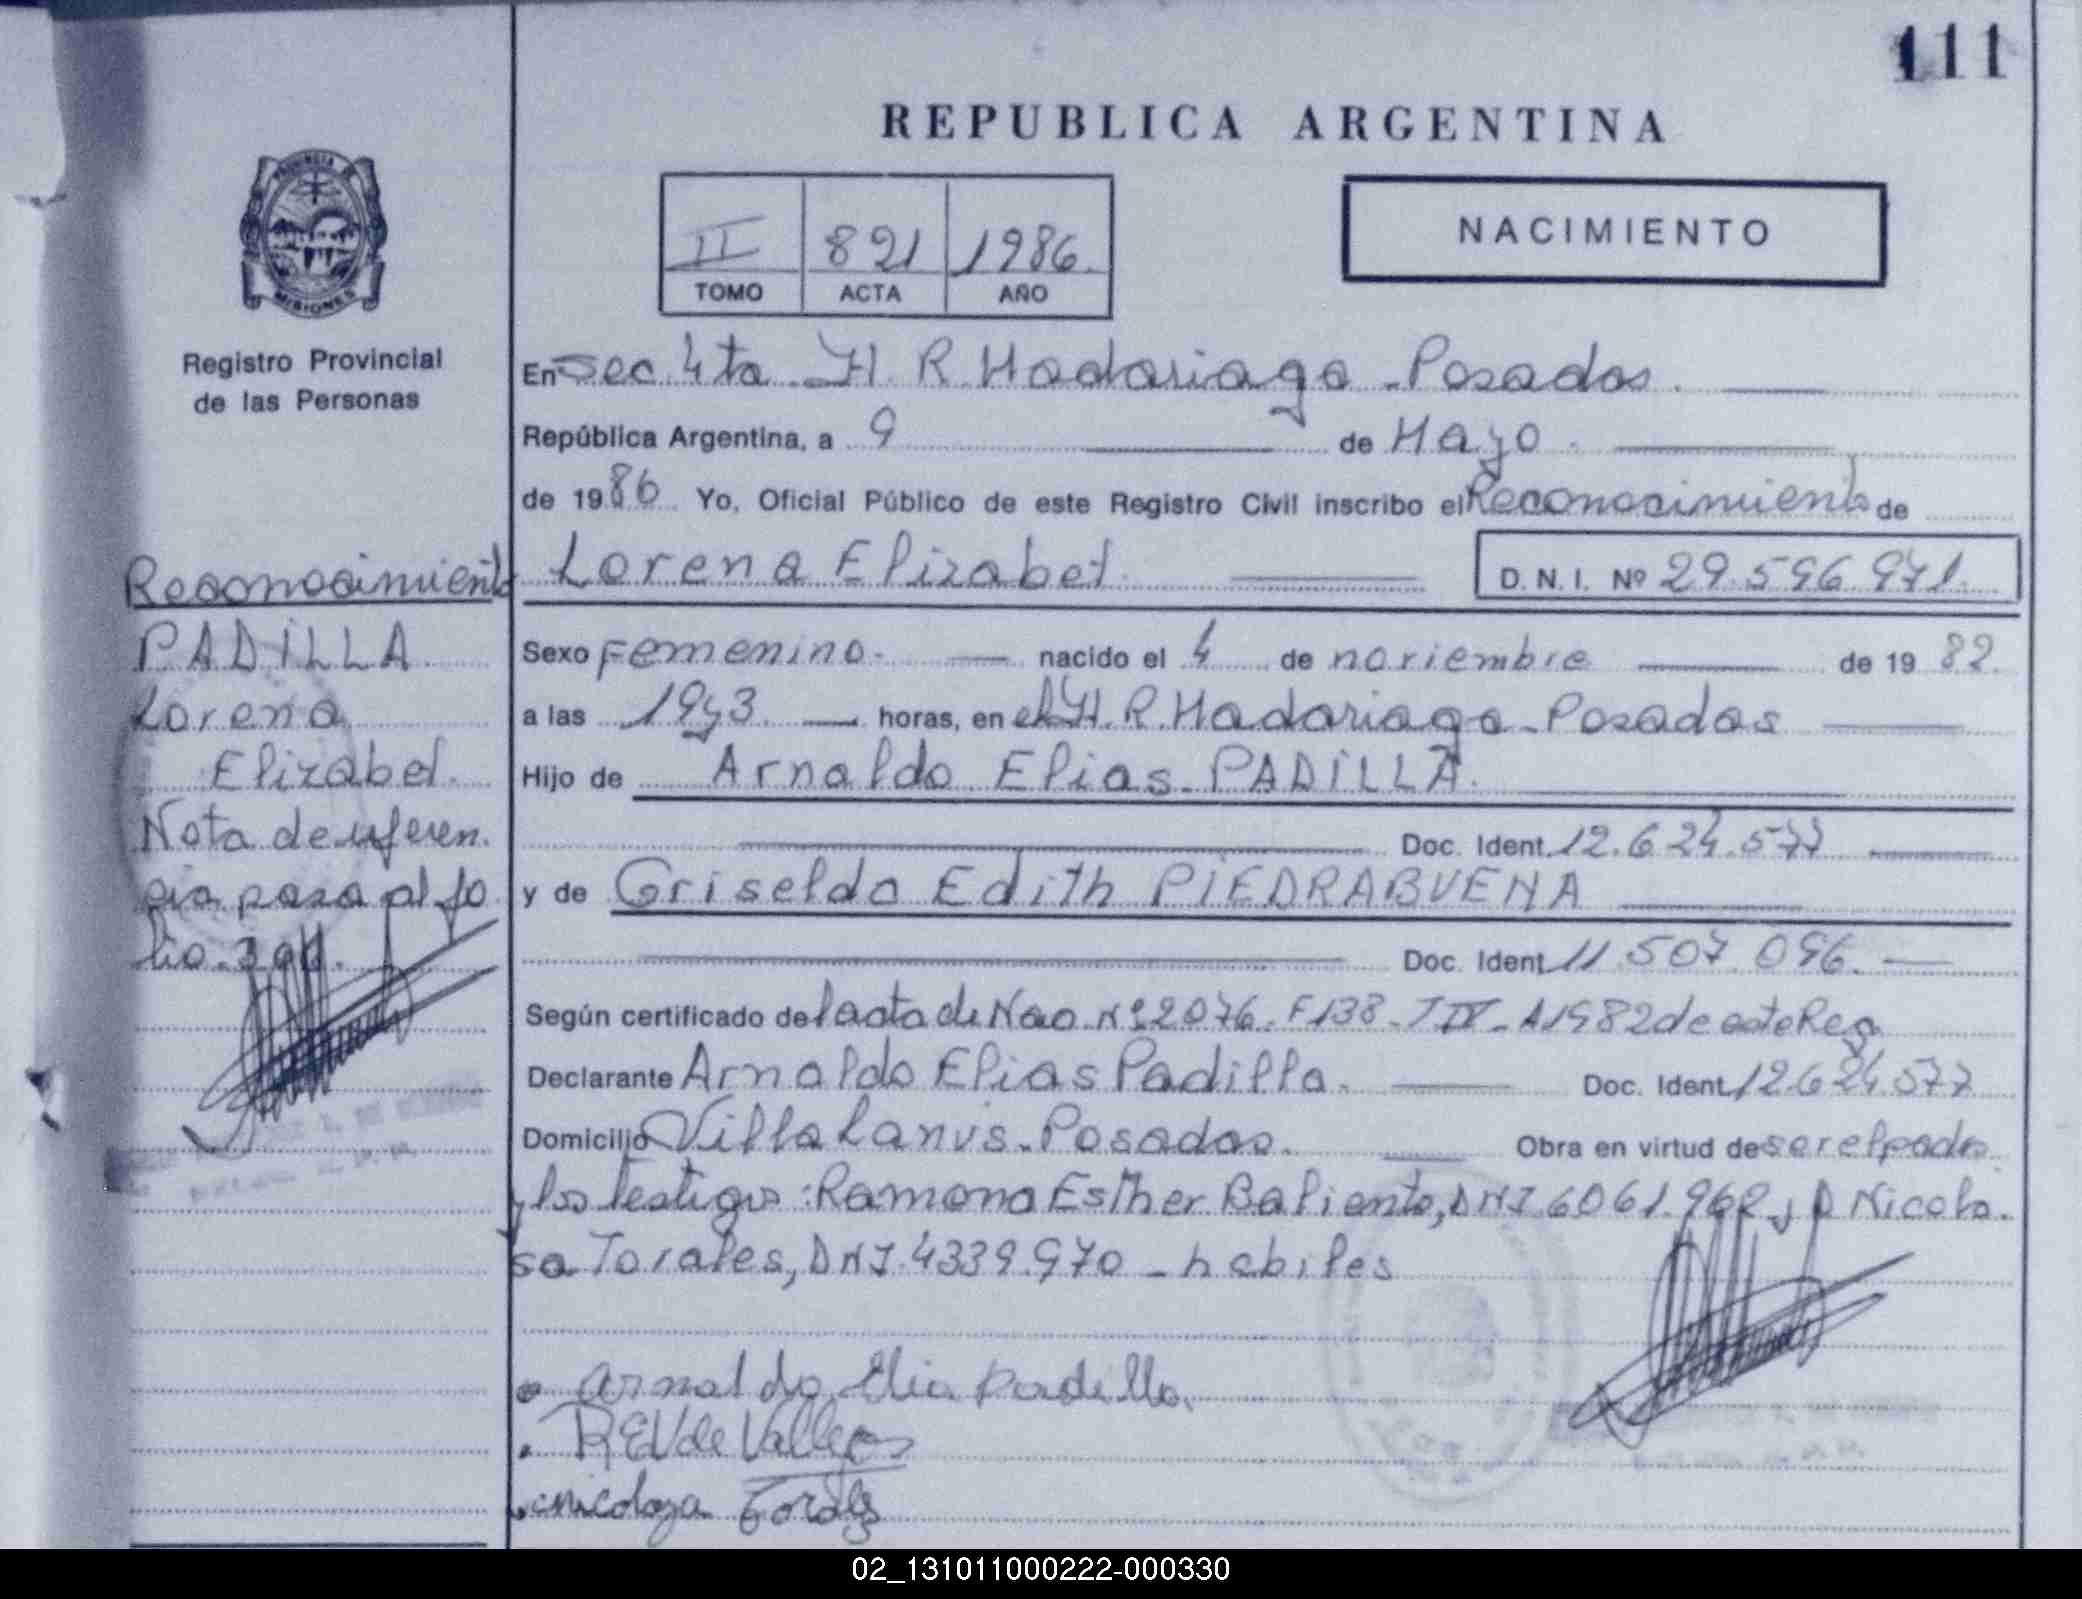 111
REPUBLICA ARGENTINA
PROVINCIA DE
MISIONES
II 821 1986.
TOMO ACTA AÑO
NACIMIENTO
Registro Provincial
de las Personas
En Sec. 4ta H. R. Madariaga - Posadas.
República Argentina, a 9 de Mayo.
de 1986 Yo, Oficial Público de este Registro Civil inscribo el Reconocimiento de
Lorena Elizabet. D. N. I. Nº 29.596.971.
Sexo Femenino. nacido el 4 de noviembre de 19 82.
a las 19y3 horas, en el H. R. Madariaga - Posadas
Hijo de Arnaldo Elias PADILLA.
Doc. Ident. 12.624.577
y de Griselda Edith PIEDRABUENA
Doc. Ident. 11.507.096.
Según certificado de l acta de Nac. Nº 2076. F138 - T IV - A1982 de este Reg
Declarante Arnaldo Elias Padilla. Doc. Ident. 12.624.577
Domicilio Villa Lanus - Posadas. Obra en virtud de ser el padre.
y los testigos: Ramona Esther Baliento, DNI 6061.962 y D Nicola.
sa Torales, DNI. 4339.970 - habiles
Arnaldo Elia Padilla.
REV de Vallejos
nicolaza Torales
Reconocimiento
PADILLA
Lorena
Elizabet.
Nota de referen.
cia pasa al fo
lio. 390.
02_131011000222-000330